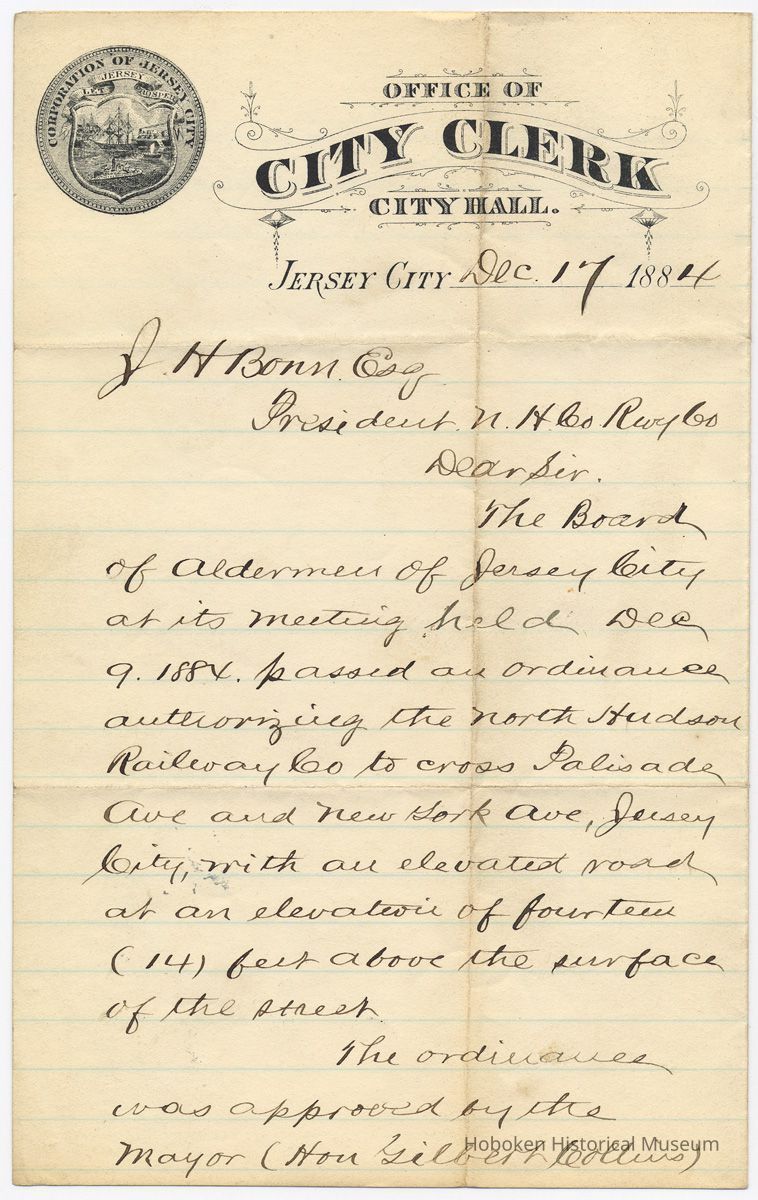 CORPORATION OF JERSEY CITY
LET JERSEY PROSPER
OFFICE OF
CITY CLERK
CITY HALL.
JERSEY CITY Dec. 17 1884
J. H Bonn. Esq
President. N. H. Co Rwy Co
Dear Sir.
The Board
of Aldermen of Jersey City
at its meeting held Dec
9. 1884. passed an ordinance
authorizing the North Hudson
Railway Co to cross Palisade
Ave and New York Ave, Jersey
City, with an elevated road
at an elevation of fourteen
(14) feet above the surface
of the street.
The ordinance
was approved by the
Mayor (Hon Gilbert Collins)
Hoboken Historical Museum